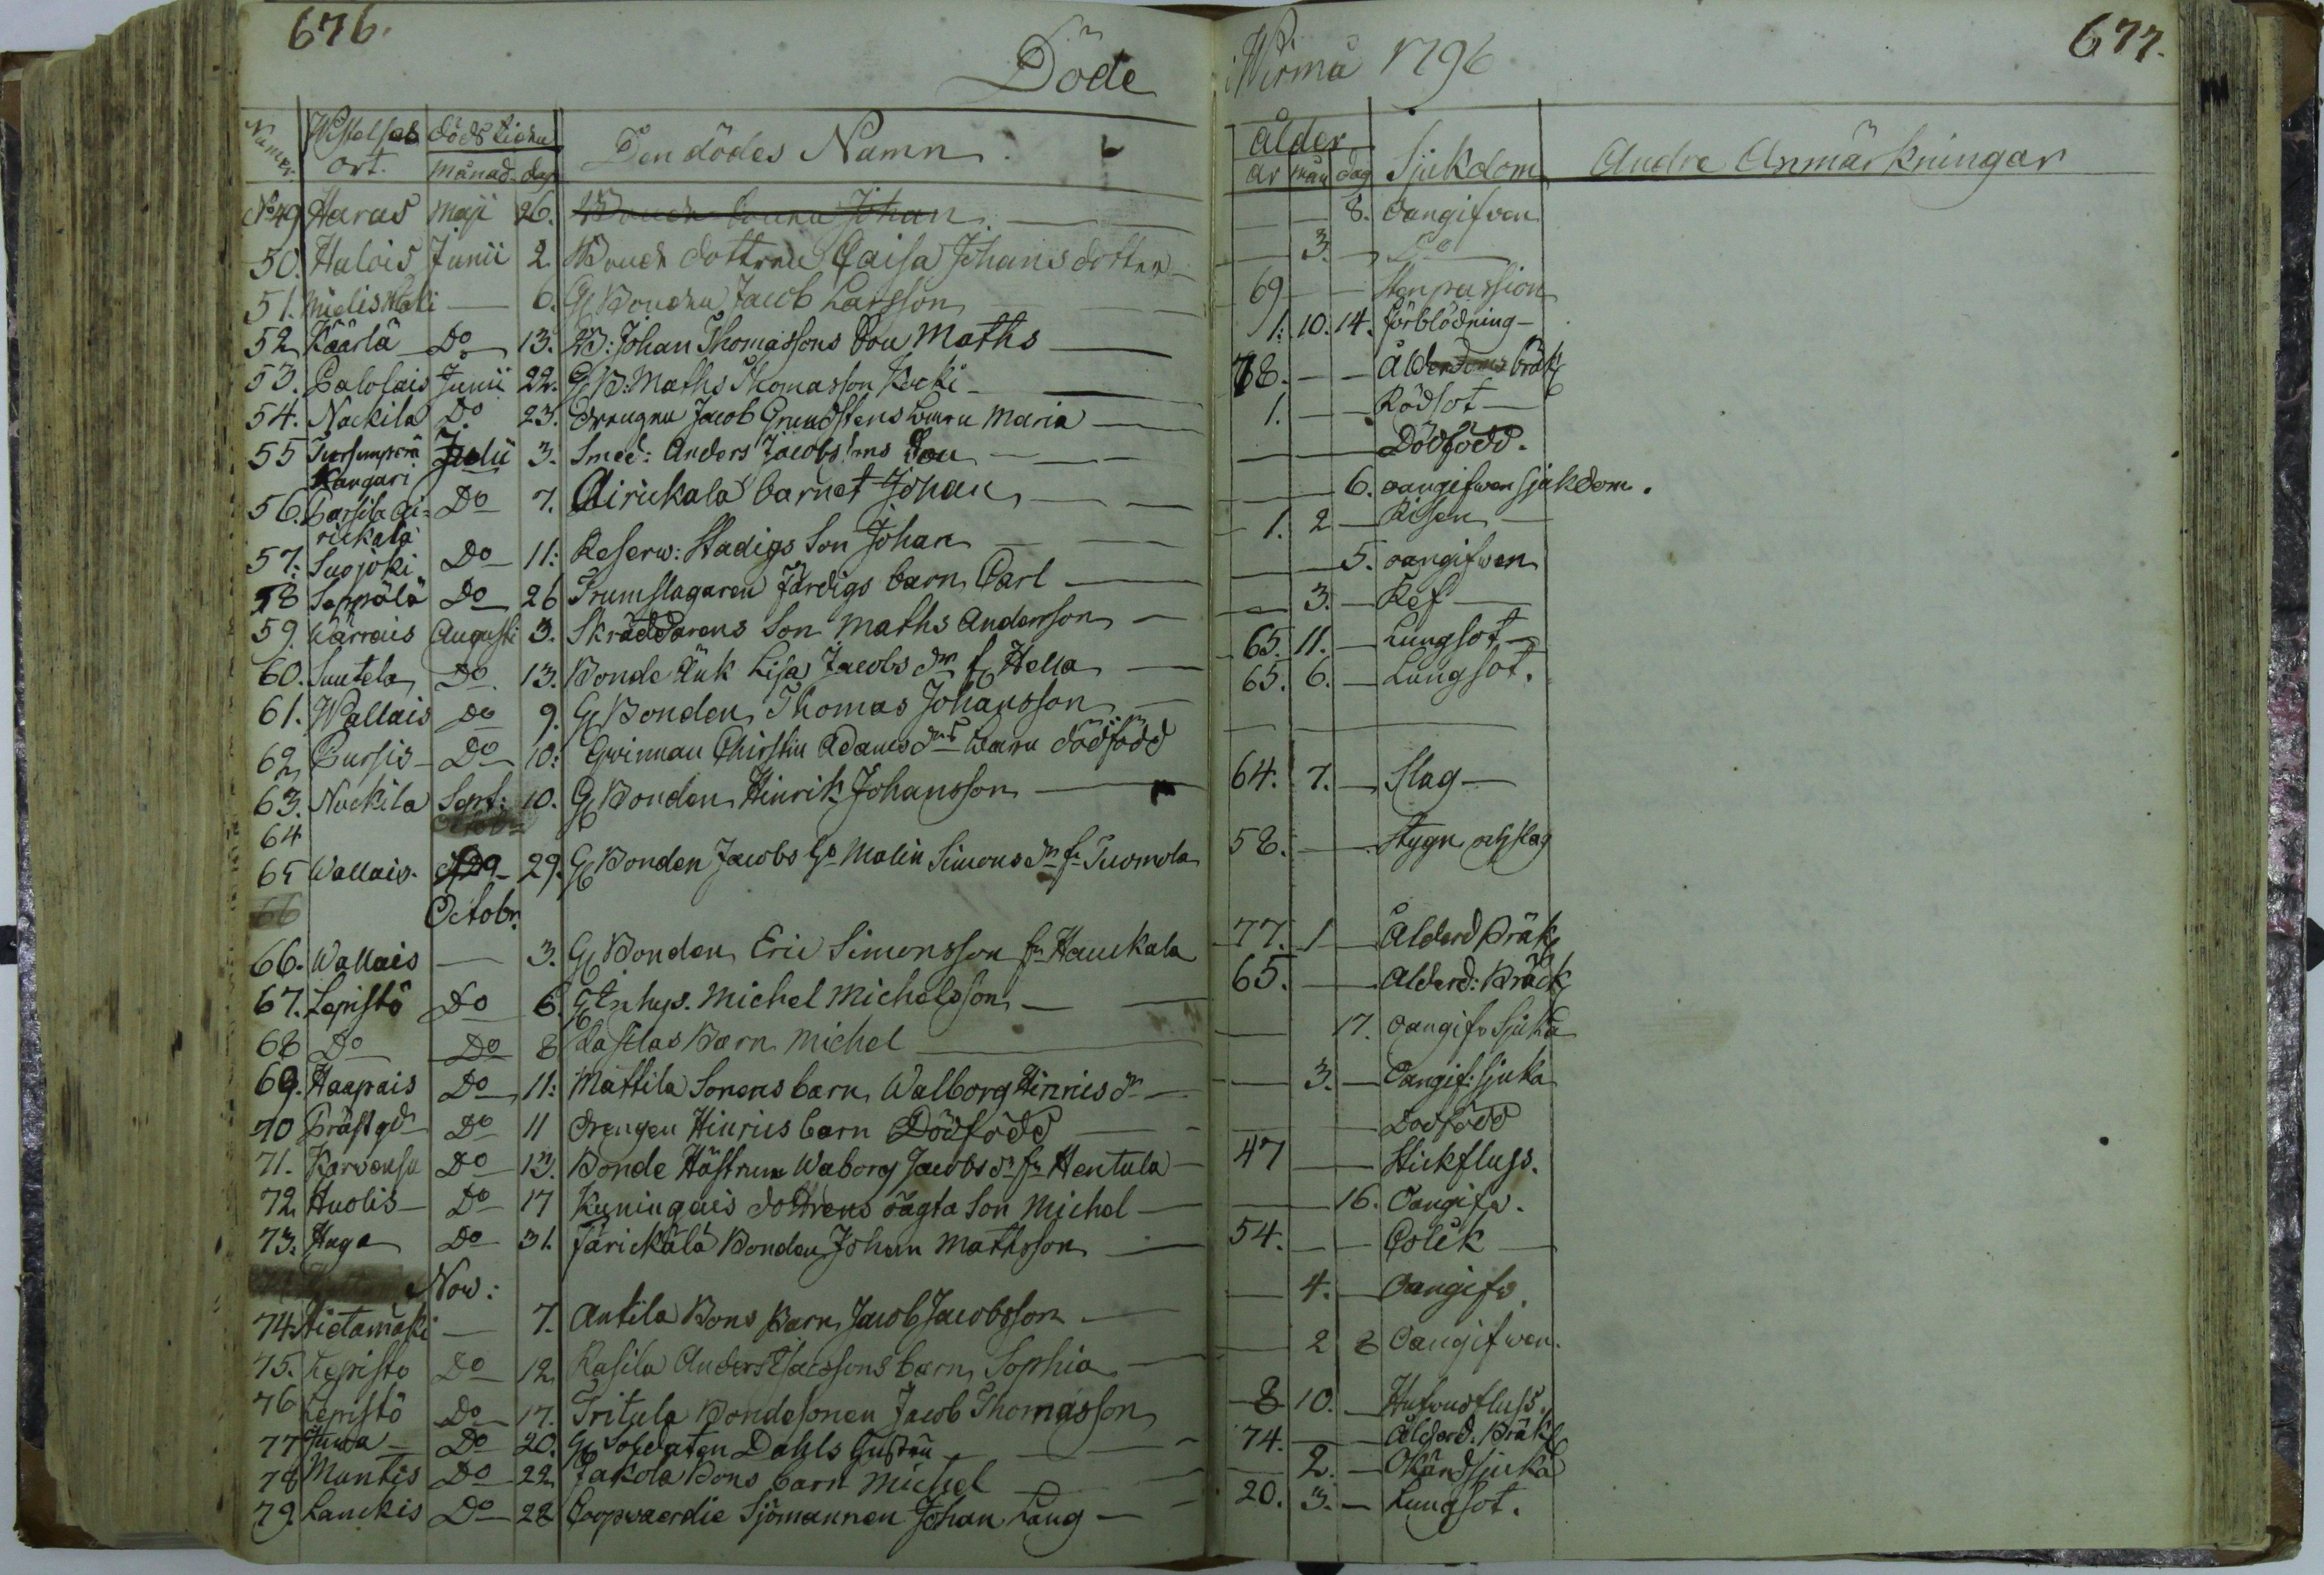 676.
Döde
i Wirmå 1796
677.
Numer. Wistelses ort. dödstiden månad dag Den dödes Namn ålder år mån dag Sjukdom Andre Anmärkningar
No 49. Haras Maji 26. Johan — — 8. oangifven
50. Halois Junii 2. dottren Caisa Johansdotter — 3. — Do
51. — 6. Gl Bonden Jacob Larsson 69 — — Stenpassion
52 Käärlä Do 13. B: Johan Thomassons Son Maths 1. 10. 14. förblödning —
53. Palolais Junii 22. Gl B: Maths Thomasson Kocki 78. — — Ålderdoms bräk
54. Nockila Do 23. Drengen Jacob Grundstens barn Maria 1. — — Rödsot —
55 Kangari Julii 3. Smed: Anders Jacobssons Son — — — Dödfödd.
56. Parsila Airickala Do 7. Airickala barnet Johan — — 6. oangifwen sjukdom.
57. Suojoki Do 11: Reserw: Stadigs Son Johan 1. 2 — Risen —
58 Seppälä Do 26 Trumslagaren Färdigs barn Carl — — 5. oangifwen
59. Karrais Augusti 3. Skräddarens Son Maths Andersson — 3. — Ref —
60. Suutela Do 13. Bonde Änk Lisa Jacobs dr f. Hella 65. 11. — Lungsot —
61. Wallais Do 9. Gl Bonden Thomas Johansson 65. 6. — Lungsot.
62 Pursis Do 10: Qvinnan Christin Adams drs barn dödfödd — — —
63. Nockila Sept: 10. Gl Bonden Hinrik Johansson 64. 7. — Slag —
64
65 Wallais. 29. Gl Bonden Jacobs h. Malin Simons dr fr Tuomola 58. — — Stygn och slag
66 Octobr.
66. Wallais — 3. Gl Bonden Eric Simonsson fr Haukala 77. 1 — Ålderd Bräk
67. Lepistö Do 6. Gl Inhys. Michel Michelsson 65. — — Ålderd: Bräck
68 Do Do 8 Rastlas Barn Michel — — 17. Oangifv Sjuka
69. Haapais Do 11: Mattila Sonens barn Walborg Hinrics dr — 3. — Oangif: Sjuka
70 Prästgd Do 11 Drengen Hinrics barn Dödfödd — — Dödfödd
71. Karvonsu Do 13. Bonde Hustrun Waborg Jacobs dr fr Hentula 47 — — Stickfluss.
72 Huolis Do 17 Kuningais dottrens oägta Son Michel — — 16. Oangifv.
73. Haga Do 31. Järickälä Bonden Johan Mathsson 54. — — Colik —
Now:
74 Hietamäki — 7. Antila Bons Barn Jacob Jacobsson — 4. — Oangifv.
75. Lepistö Do 12 Rasila Anders Isacssons barn Sophia — 2 8 Oangifwen.
76 Lepistö Do 17. Tritula Bondesonen Jacob Thomasson 8 10. — Hufvudfluss.
77 Juva Do 20. Gl Soldaten Dahls Gustru 74. — — Ålderd: Bräk
78 Muntis Do 22 Jakola Bons barn Michel — 2. — Okänd sjuka
79. Lanckis Do 28 Coopvaerdie Sjömannen Johan Lang 20. 3. — Lungsot.